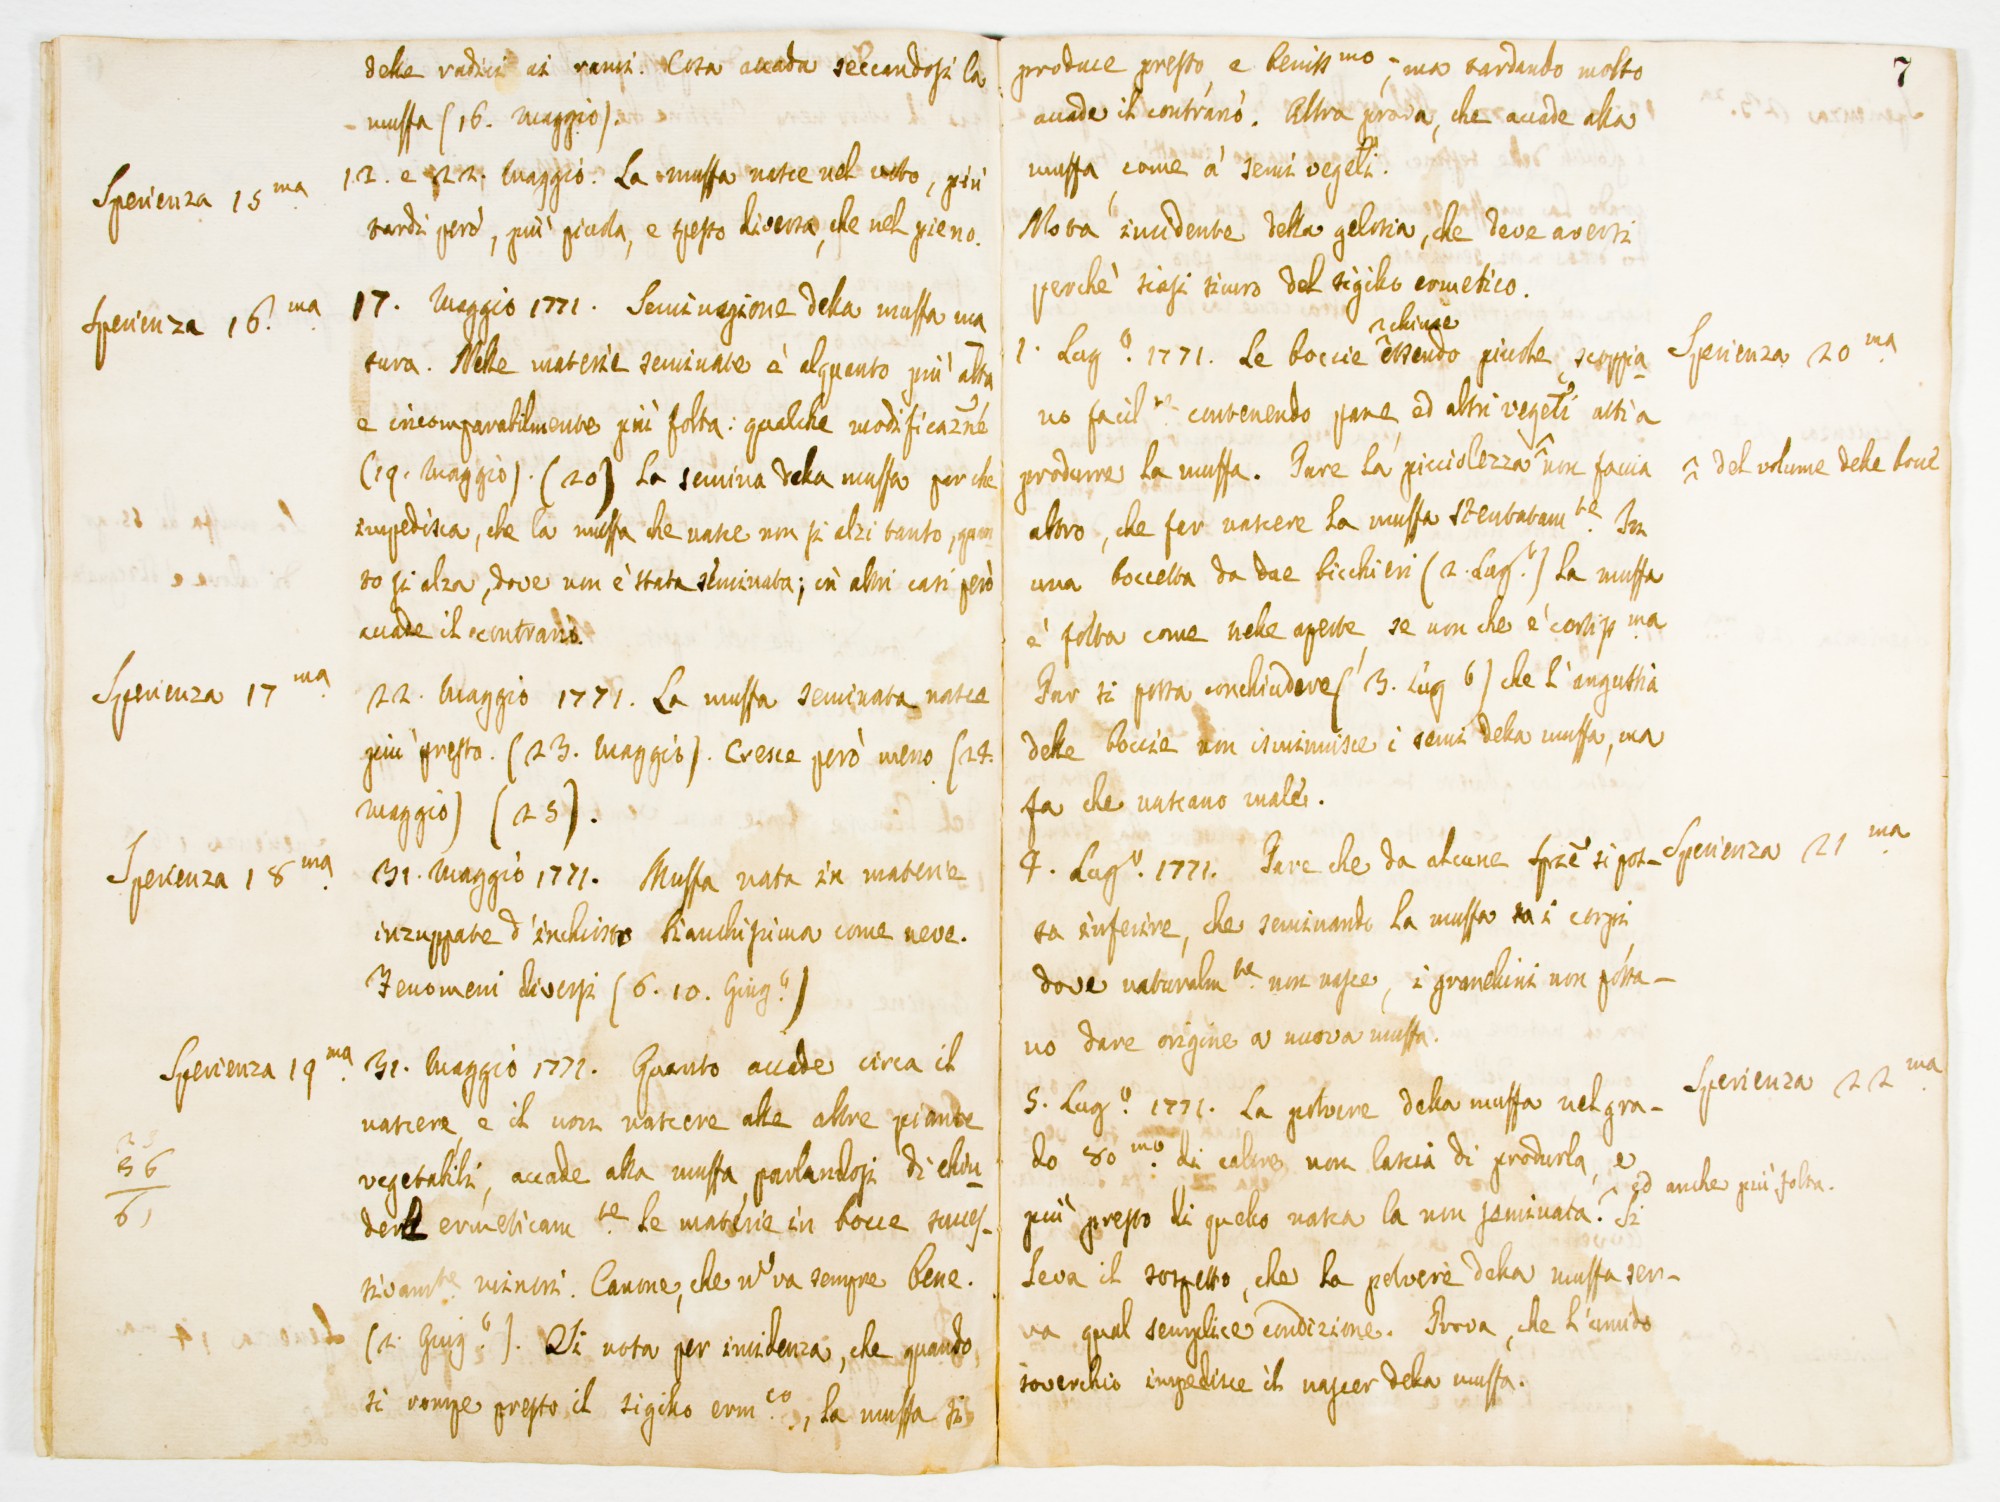 delle radici ai rami. Cosa accada seccandosi la
muffa (16. Maggio).
Sperienza 15 ma
12. e 22. Maggio. La muffa nasce nel voto, più
tardi però, più piccola, e spesso diversa, che nel pieno.
Sperienza 16. ma
17. Maggio 1771. Seminagione della muffa ma
tura. Nelle materie seminate è alquanto più alta
e incomparabilmente più folta: qualche modificazne
(19. Maggio). (20) La semina della muffa par che
impedisca, che la muffa che nasce non si alzi tanto, quan
to si alza, dove non è stata seminata; in altri casi però
accade il contrario.
Sperienza 17 ma
22. Maggio 1771. La muffa seminata nasce
più presto. (23. Maggio). Cresce però meno (24.
Maggio) (25).
Sperienza 18 ma
31. Maggio 1771. Muffa nata in materie
inzuppate d'inchiostro bianchissima come neve.
Fenomeni diversi (6. 10. Giug.o)
Sperienza 19 ma
31. Maggio 1771. Quanto accade circa il
nascere, e il non nascere alle altre piante
vegetabili, accade alla muffa parlandosi di chiu
dere ermeticam te le materie in bocce succes-
sivamte minori. Canone, che va sempre bene.
(2. Giug.o). Si nota per incidenza, che quando
si rompe presto il sigillo erm.co, la muffa si
36
61
7
produce presto, e beniss mo; ma tardando molto
accade il contrario. Altra prova, che accade alla
muffa, come a' semi vegeli.
Nota incidente della gelosia, che deve aversi
perchè siasi sicuro del sigillo ermetico.
Sperienza 20 ma
1. Lug.o 1771. Le boccie chiuse essendo piccole, scoppia
no facil te contenendo pane ed altri vegeli atti a
produrre la muffa. Pare la picciolezza non faccia
^ del volume delle bocce
altro, che far nascere la muffa stentatam te. In
una boccetta da due bicchieri (2. Lug.o) la muffa
è folta come nelle aperte, se non che è cortiss ma
Par si possa conchiudere (3. Lug o) che l'angustia
delle boccie non isminuisce i semi della muffa, ma
fa che nascano male.
Sperienza 21 ma
4. Lug.o 1771. Pare che da alcune sprze si pos-
sa inferire, che seminando la muffa su i corpi
dove naturalm te non nasce, i granellini non possa-
no dare origine a nuova muffa.
Sperienza 22 ma
5. Lug.o 1771. La polvere della muffa nel gra-
do 80 mo. di calore non lascia di produrla, e
più presto di quello nasca la non seminata. Si
ed anche più folta.
leva il sospetto, che la polvere della muffa ser-
va qual semplice condizione. Prova, che l'umido
soverchio impedisce il nascer della muffa.